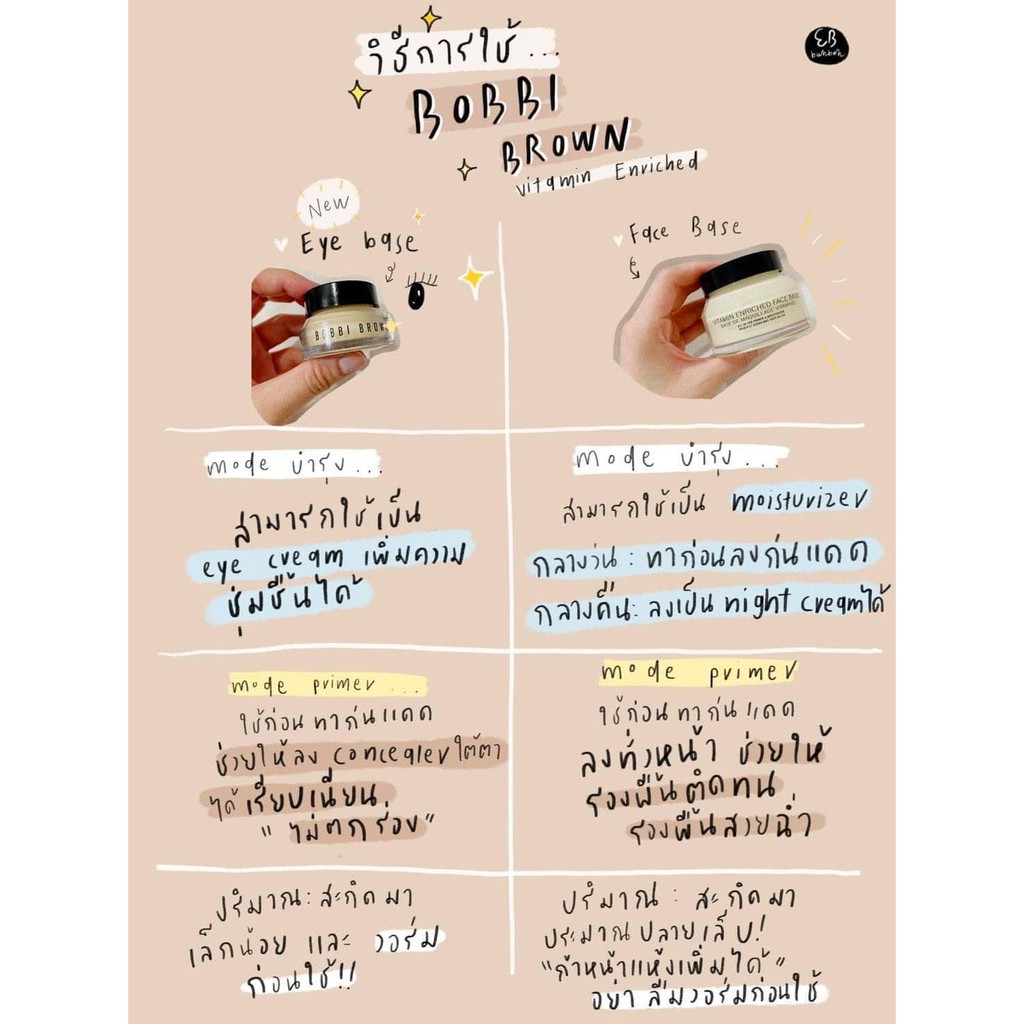 วิธีการใช้...
BOBBI
BROWN
vitamin Enriched
EB
bunbon
New
Eye base
BOBBI BROW
Face Base
VITAMIN ENRICHED FACE BASE
BASE DE MAQUILLAGE VITAMINÉE
mode บำรุง...
สามารถใช้เป็น
eye cream เพิ่มความ
ชุ่มชื้นได้
mode บำรุง...
สามารถใช้เป็น moisturizer
กลางวัน : ทาก่อนลงกันแดด
กลางคืน: ลงเป็น night creamได้
mode primer...
ใช้ก่อนทากันแดด
ช่วยให้ลง concealer ใต้ตา
ได้เรียบเนียน
"ไม่ตกร่อง"
mode primer
ใช้ก่อนทากันแดด
ลงทั่วหน้า ช่วยให้
รองพื้นติดทน
รองพื้นสวยฉ่ำ
ปริมาณ: สะกิดมา
เล็กน้อย และ วอร์ม
ก่อนใช้!!
ปริมาณ : สะกิดมา
ประมาณปลายเล็บ!
"ถ้าหน้าแห้งเพิ่มได้"
อย่าลืมวอร์มก่อนใช้